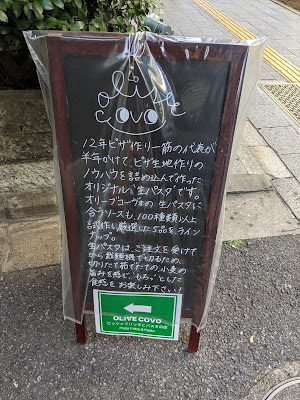 olive
covo
12年ピザ作り一筋の代表が
半年かけて、ピザ生地作りの
ノウハウを詰め込んで作った
オリジナル"生パスタ"です。
オリーブコーヴォの生パスタに
合うソースも、100種類以上
試作し厳選した5品をライン
ナップ。
生パスタは、ご注文を受けて
から製麺機で切るため、
切りたて茹でたての小麦の
旨みを感じ、"もちっ"とした
食感をお楽しみ下さい!
OLIVE COVO